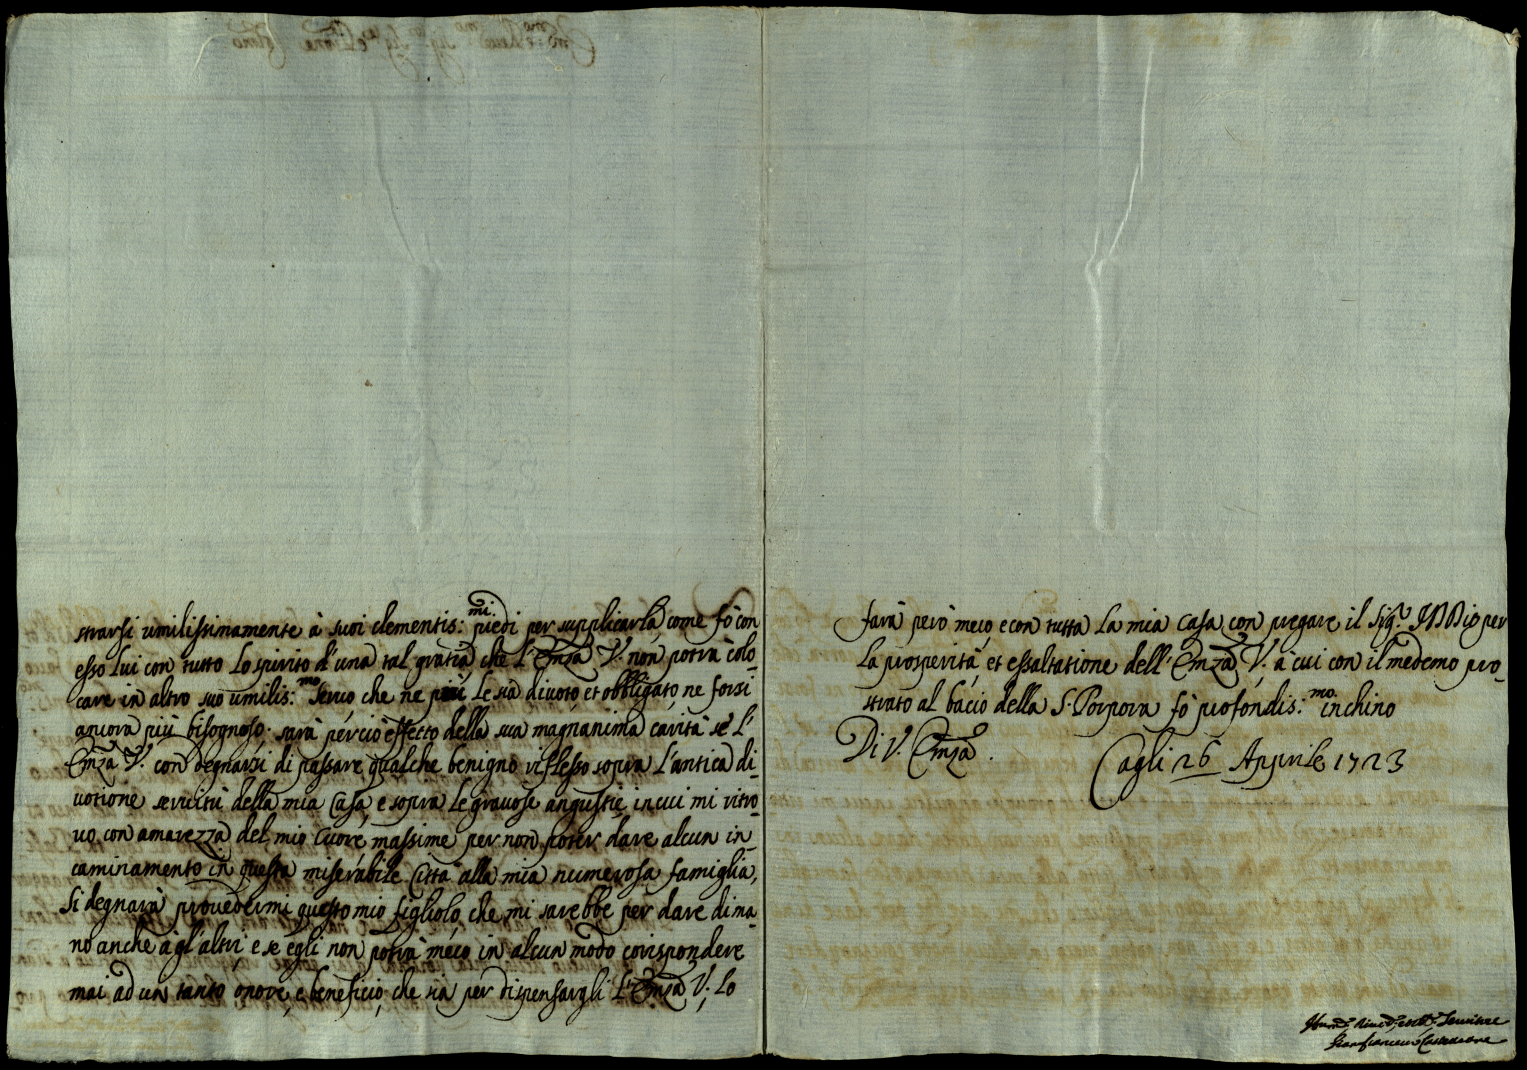 strarsi umilissimamente à suoi clementis:mi piedi per supplicarla, come fò con
esso lui con tutto lo spirito d'una tal gratia, che l'Emza V. non potrà colo-
care in altro suo umilis:mo servo che ne più le sia divoto, et obbligato, ne forsi
ancora più bisognoso: sarà perciò effetto della sua magnanima carità se l'
Emza V. con degnarsi di passare qualche benigno riflesso sopra l'antica di-
votione servitù della mia Casa, e sopra le gravose angustie, in cui mi ritro-
vo con amarezza del mio cuore, massime per non poter dare alcun in-
caminamento in questa miserabile Città alla mia numerosa famiglia,
si degnarà provedermi questo mio figliolo, che mi sarebbe per dare di ma-
no anche agl'altri, e se egli non potrà meco in alcun modo corispondere
mai ad un tanto onore, e beneficio, che sia per dispensargli l'Emza V., lo
farà però meco, e con tutta la mia casa con pregare il Sig.re Iddio per
la prosperità, et essaltatione dell'Emza V., a cui con il medemo pro-
strato al bacio della S. Porpora fò profondis:mo inchino
Di V. Emza.
Cagli 26 Aprile 1723
Servitore
Gianfrancesco